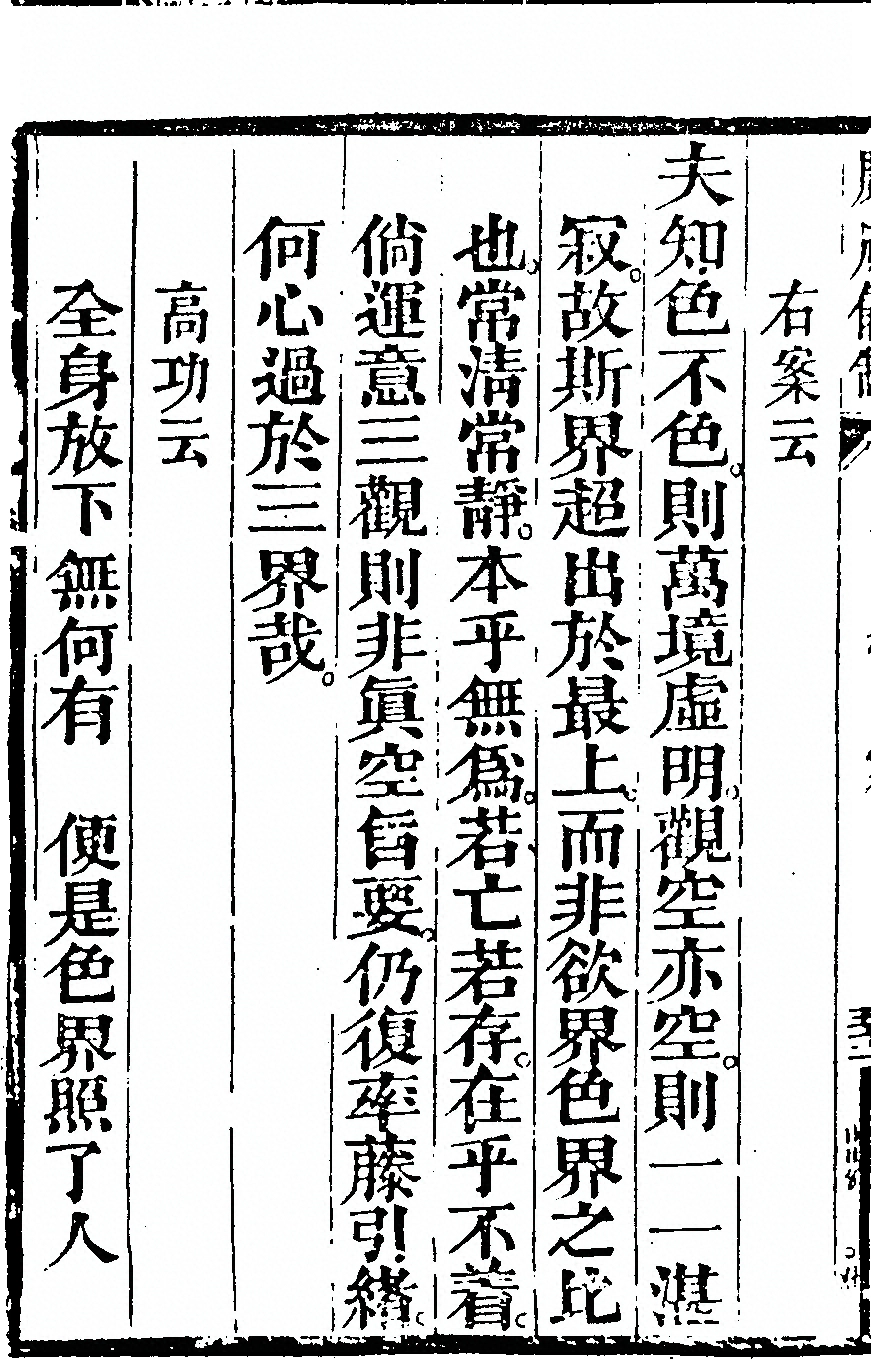 右案云
夫知色不色。則萬境虛明。觀空亦空。則一一湛
寂。故斯界超出於最上。而非欲界色界之比
也。常清常靜。本乎無爲。若亡若存。在乎不着。
倘運意三觀則非眞空旨要。仍復牽藤引緒。
何心過於三界哉。
高功云
全身放下無何有　便是色界照了人